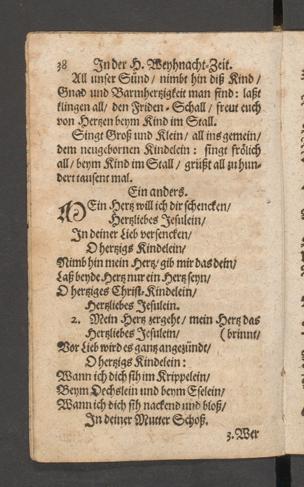 38 In der H. Weyhnacht-Zeit.
All unser Sünd / nimbt hin diß Kind /
Gnad und Barmhertzigkeit man find: laßt
klingen all / den Frieden-Schall / freut euch
von Hertzen beym Kind im Stall.
Singt Groß und Klein / all ins gemein /
dem neugebornen Kindelein: singt frölich
all / beym Kind im Stall / grüßt all zu hun-
dert tausent mal.
Ein anders.
Ein Hertz will ich dir schencken /
Hertzliebes Jesulein /
In deiner Lieb versencken /
O hertzigs Kindelein /
Nimb hin mein Hertz / gib mir das dein /
Laß beyde Hertz nur ein Hertz seyn /
O hertziges Christ-Kindelein /
Hertzliebes Jesulein.
2. Mein Hertz zergeht / mein Hertz das
Hertzliebes Jesulein / (brinnt /
Vor Lieb wird es gantz angezündt /
O hertzigs Kindelein:
Wann ich dich sih im Krippelein /
Beym Oechslein und beym Eselein /
Wann ich dich sih nackend und bloß /
In deiner Mutter Schoß.
3. Wer